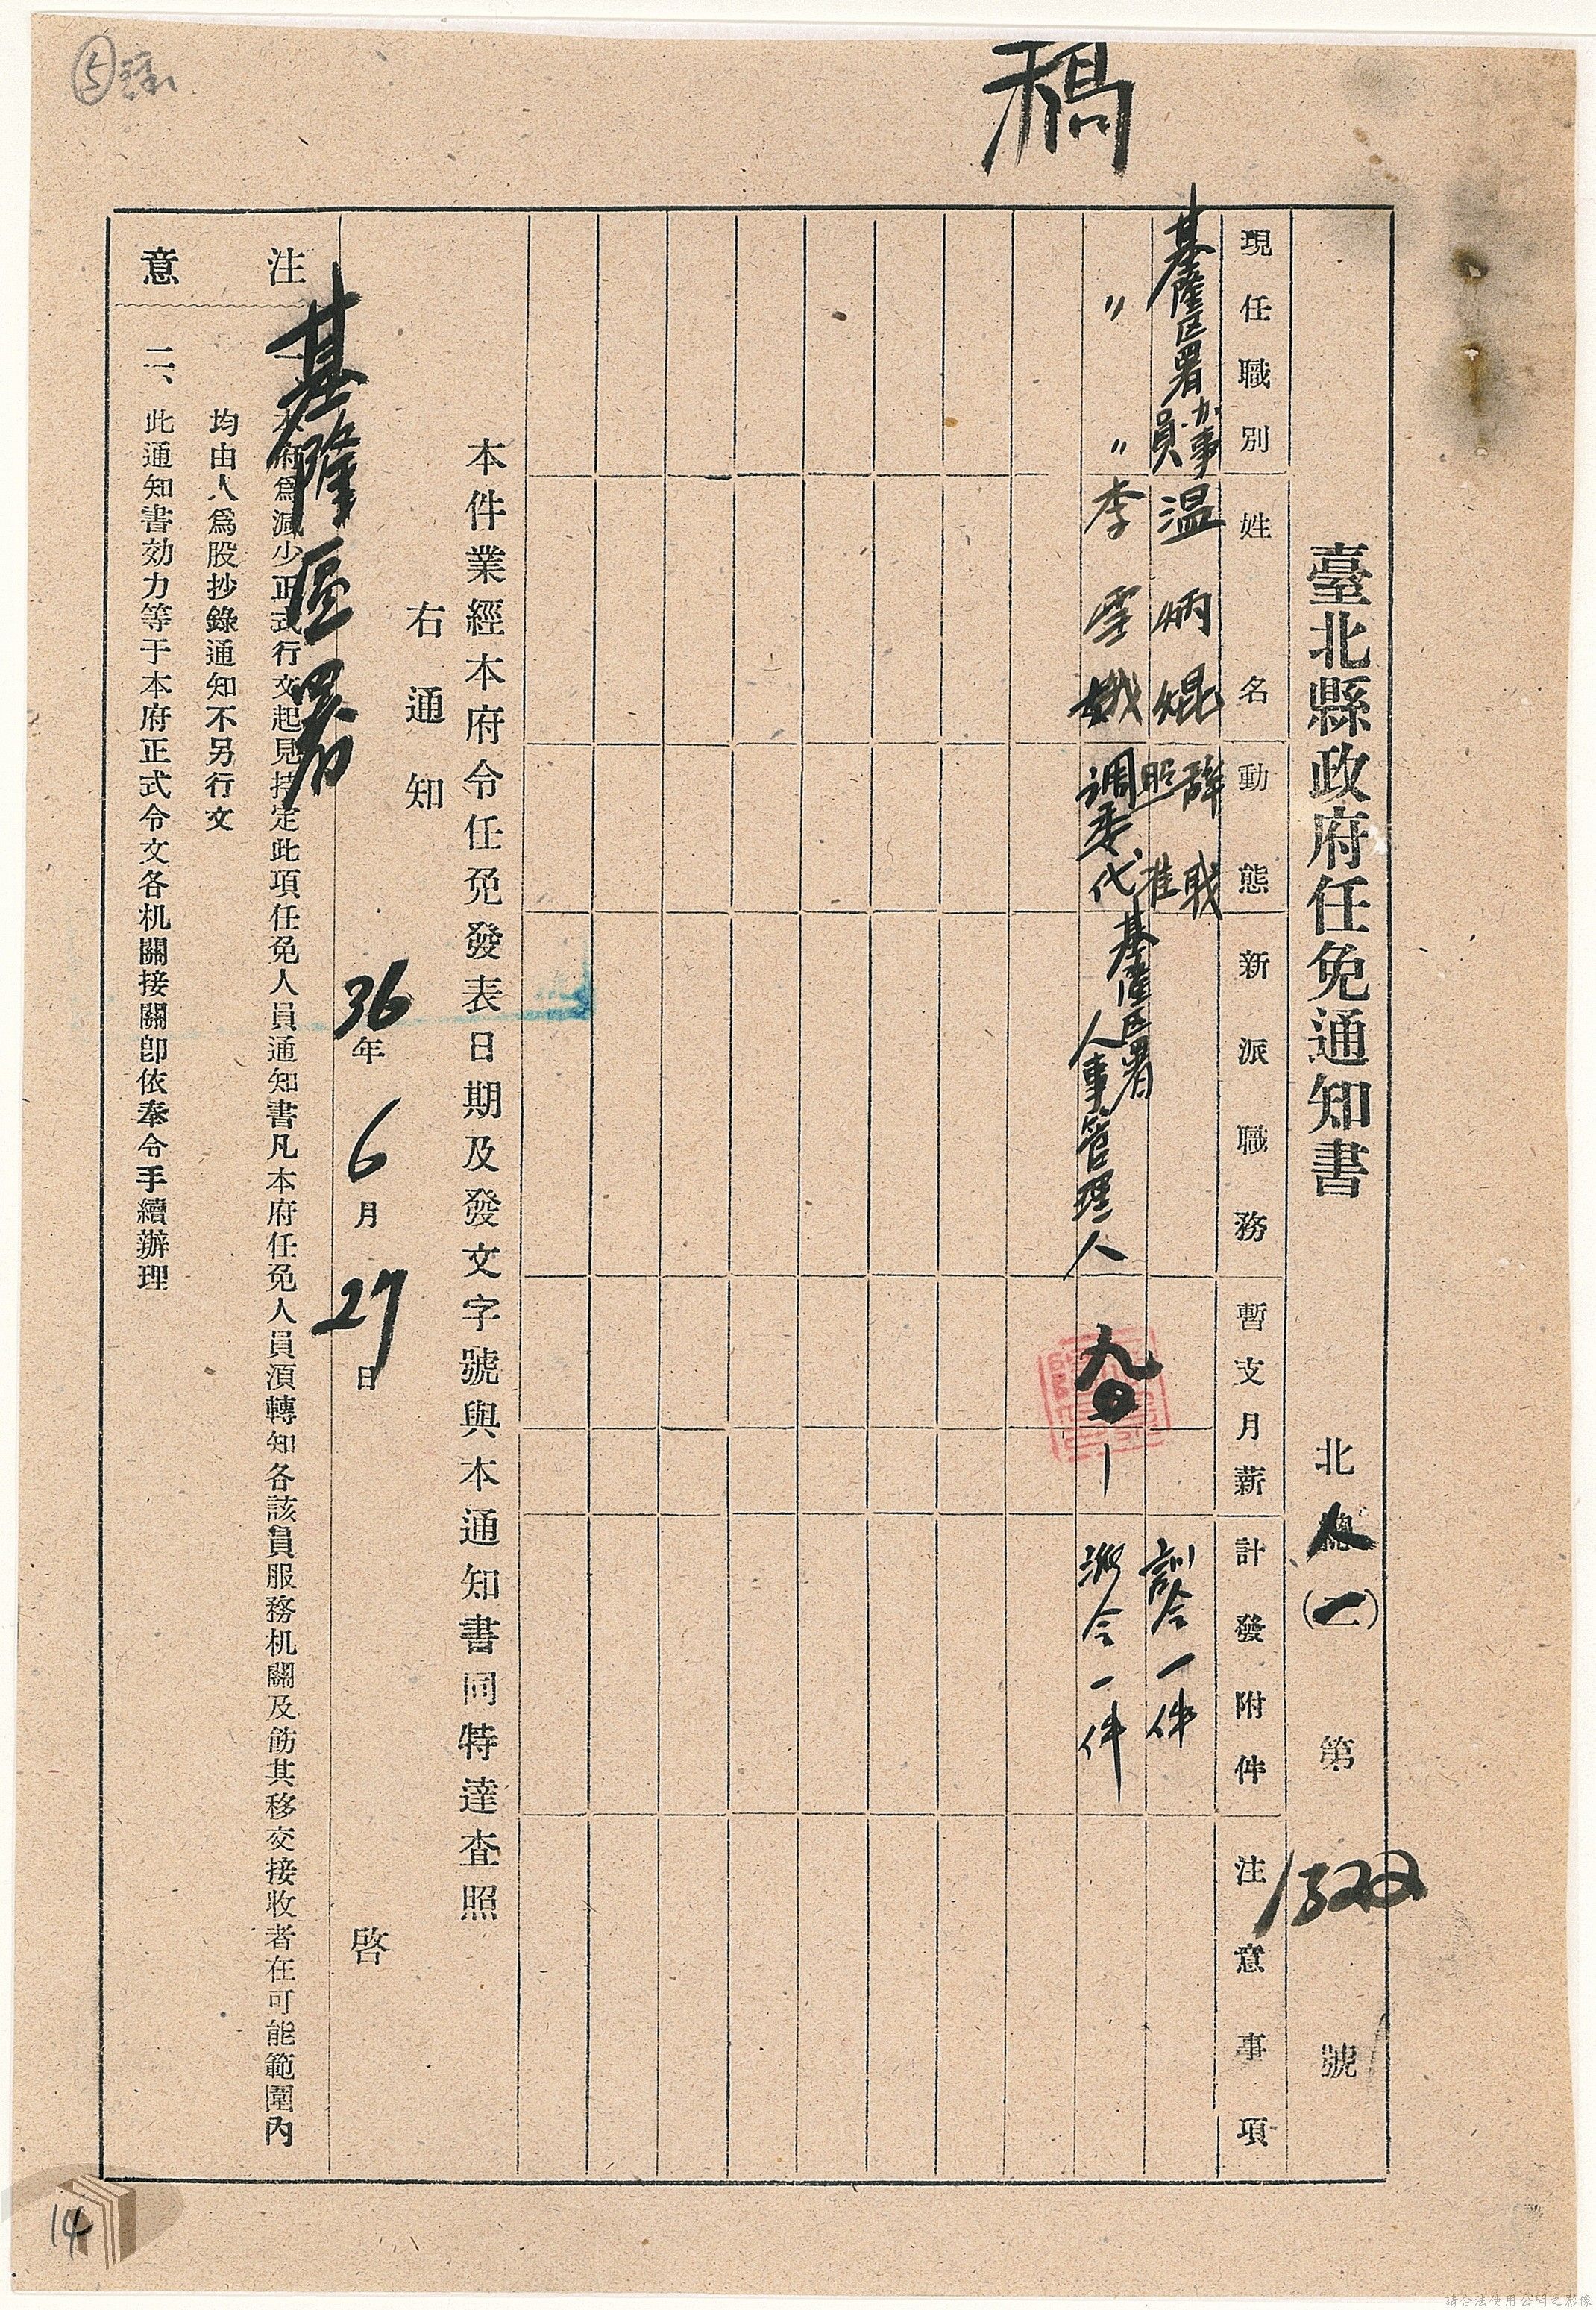 稿
臺北縣政府任免通知書
北人(一)第1522號
現任職別
姓名
動態
新派職務
暫支月薪
計發附件
注意事項
基隆区署办事員
温炳焜
辞职照准
訓令一件
〃〃
李雲娥
调委代
基隆区署人事管理人
派令一件
本件業經本府令任免發表日期及發文字號與本通知書同特達查照
右通知
基隆區署
36年6月27日
啓
注意
本府爲減少正式行文起見持定此項任免人員通知書凡本府任免人員湏轉知各該員服務机關及飭其移交接收者在可能範圍內
均由人爲股抄錄通知不另行文
二、此通知書効力等于本府正式令文各机關接關卽依奉令手續辦理
5
14
請合法使用公開之影像